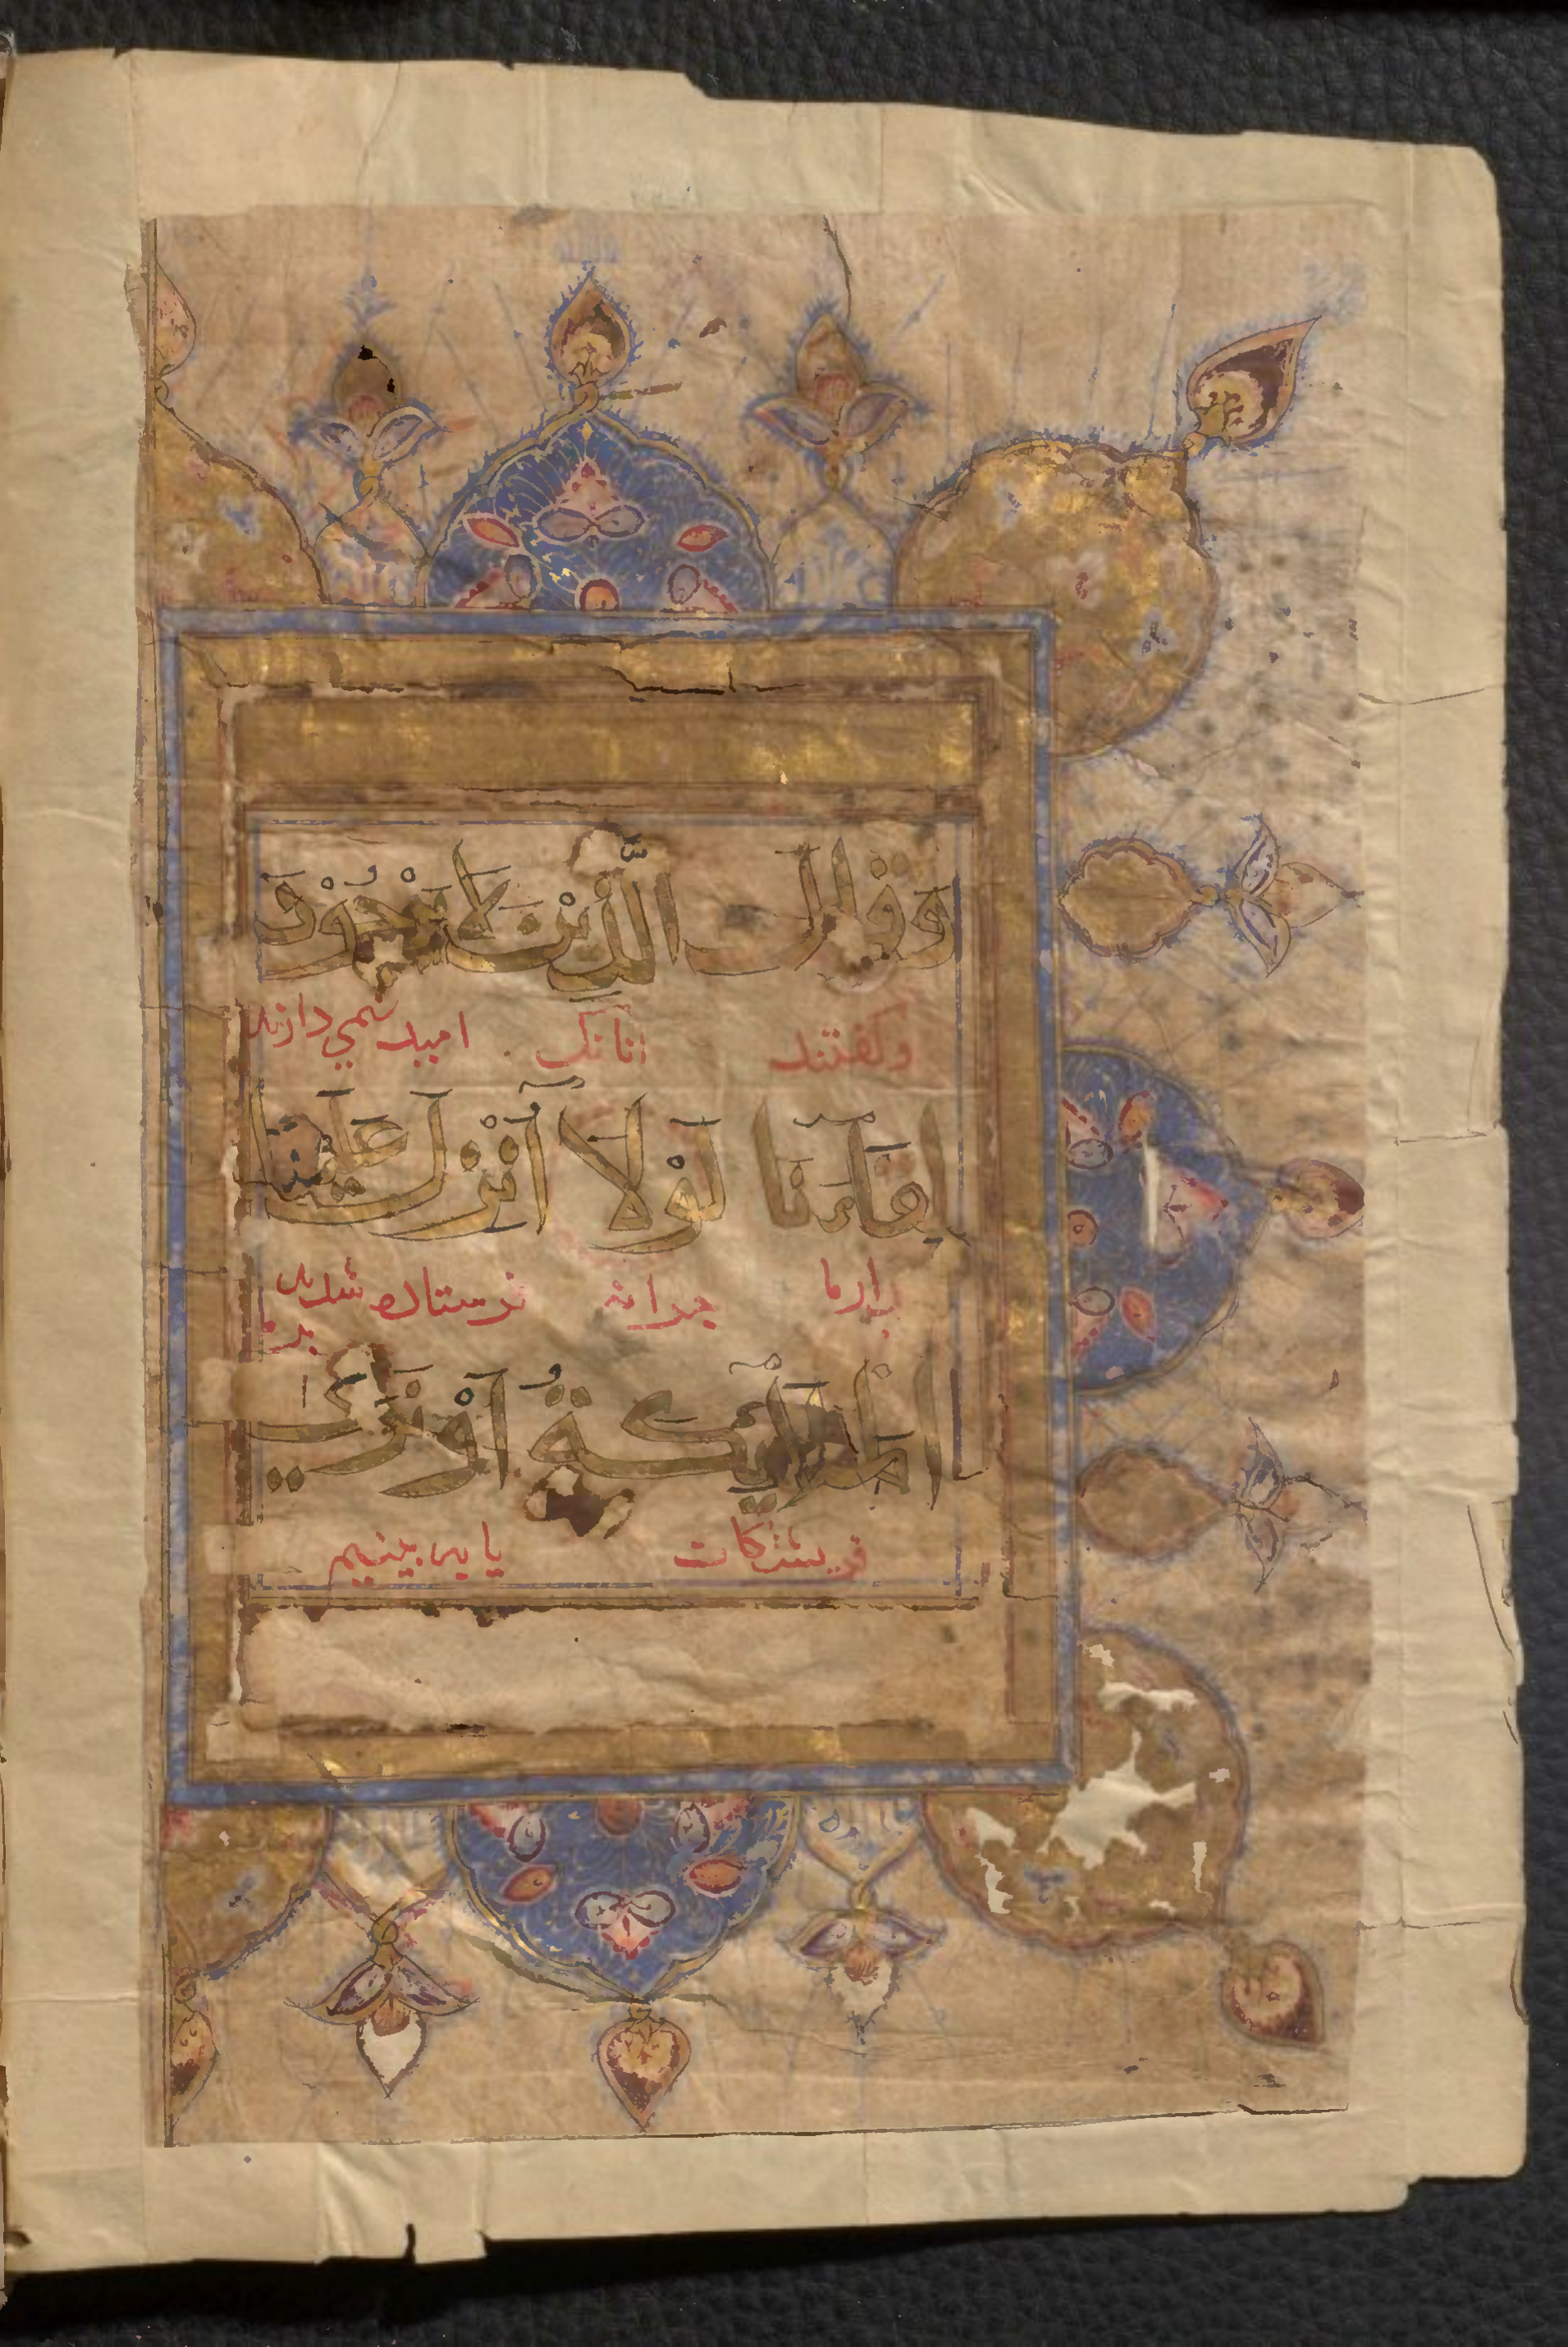 وَقَالَ الَّذِينَ لَا يَرْجُوْنَ
وكفتند انانك اميد نمي دارند
لِقَاءَنَا لَوْلَا أُنْزِلَ عَلَيْنَا
بدارما جرا نه فرستاده شد
برما
الْمَلَائِكَةُ أَوْ نَرَى
فريشتكان يا به بينيم